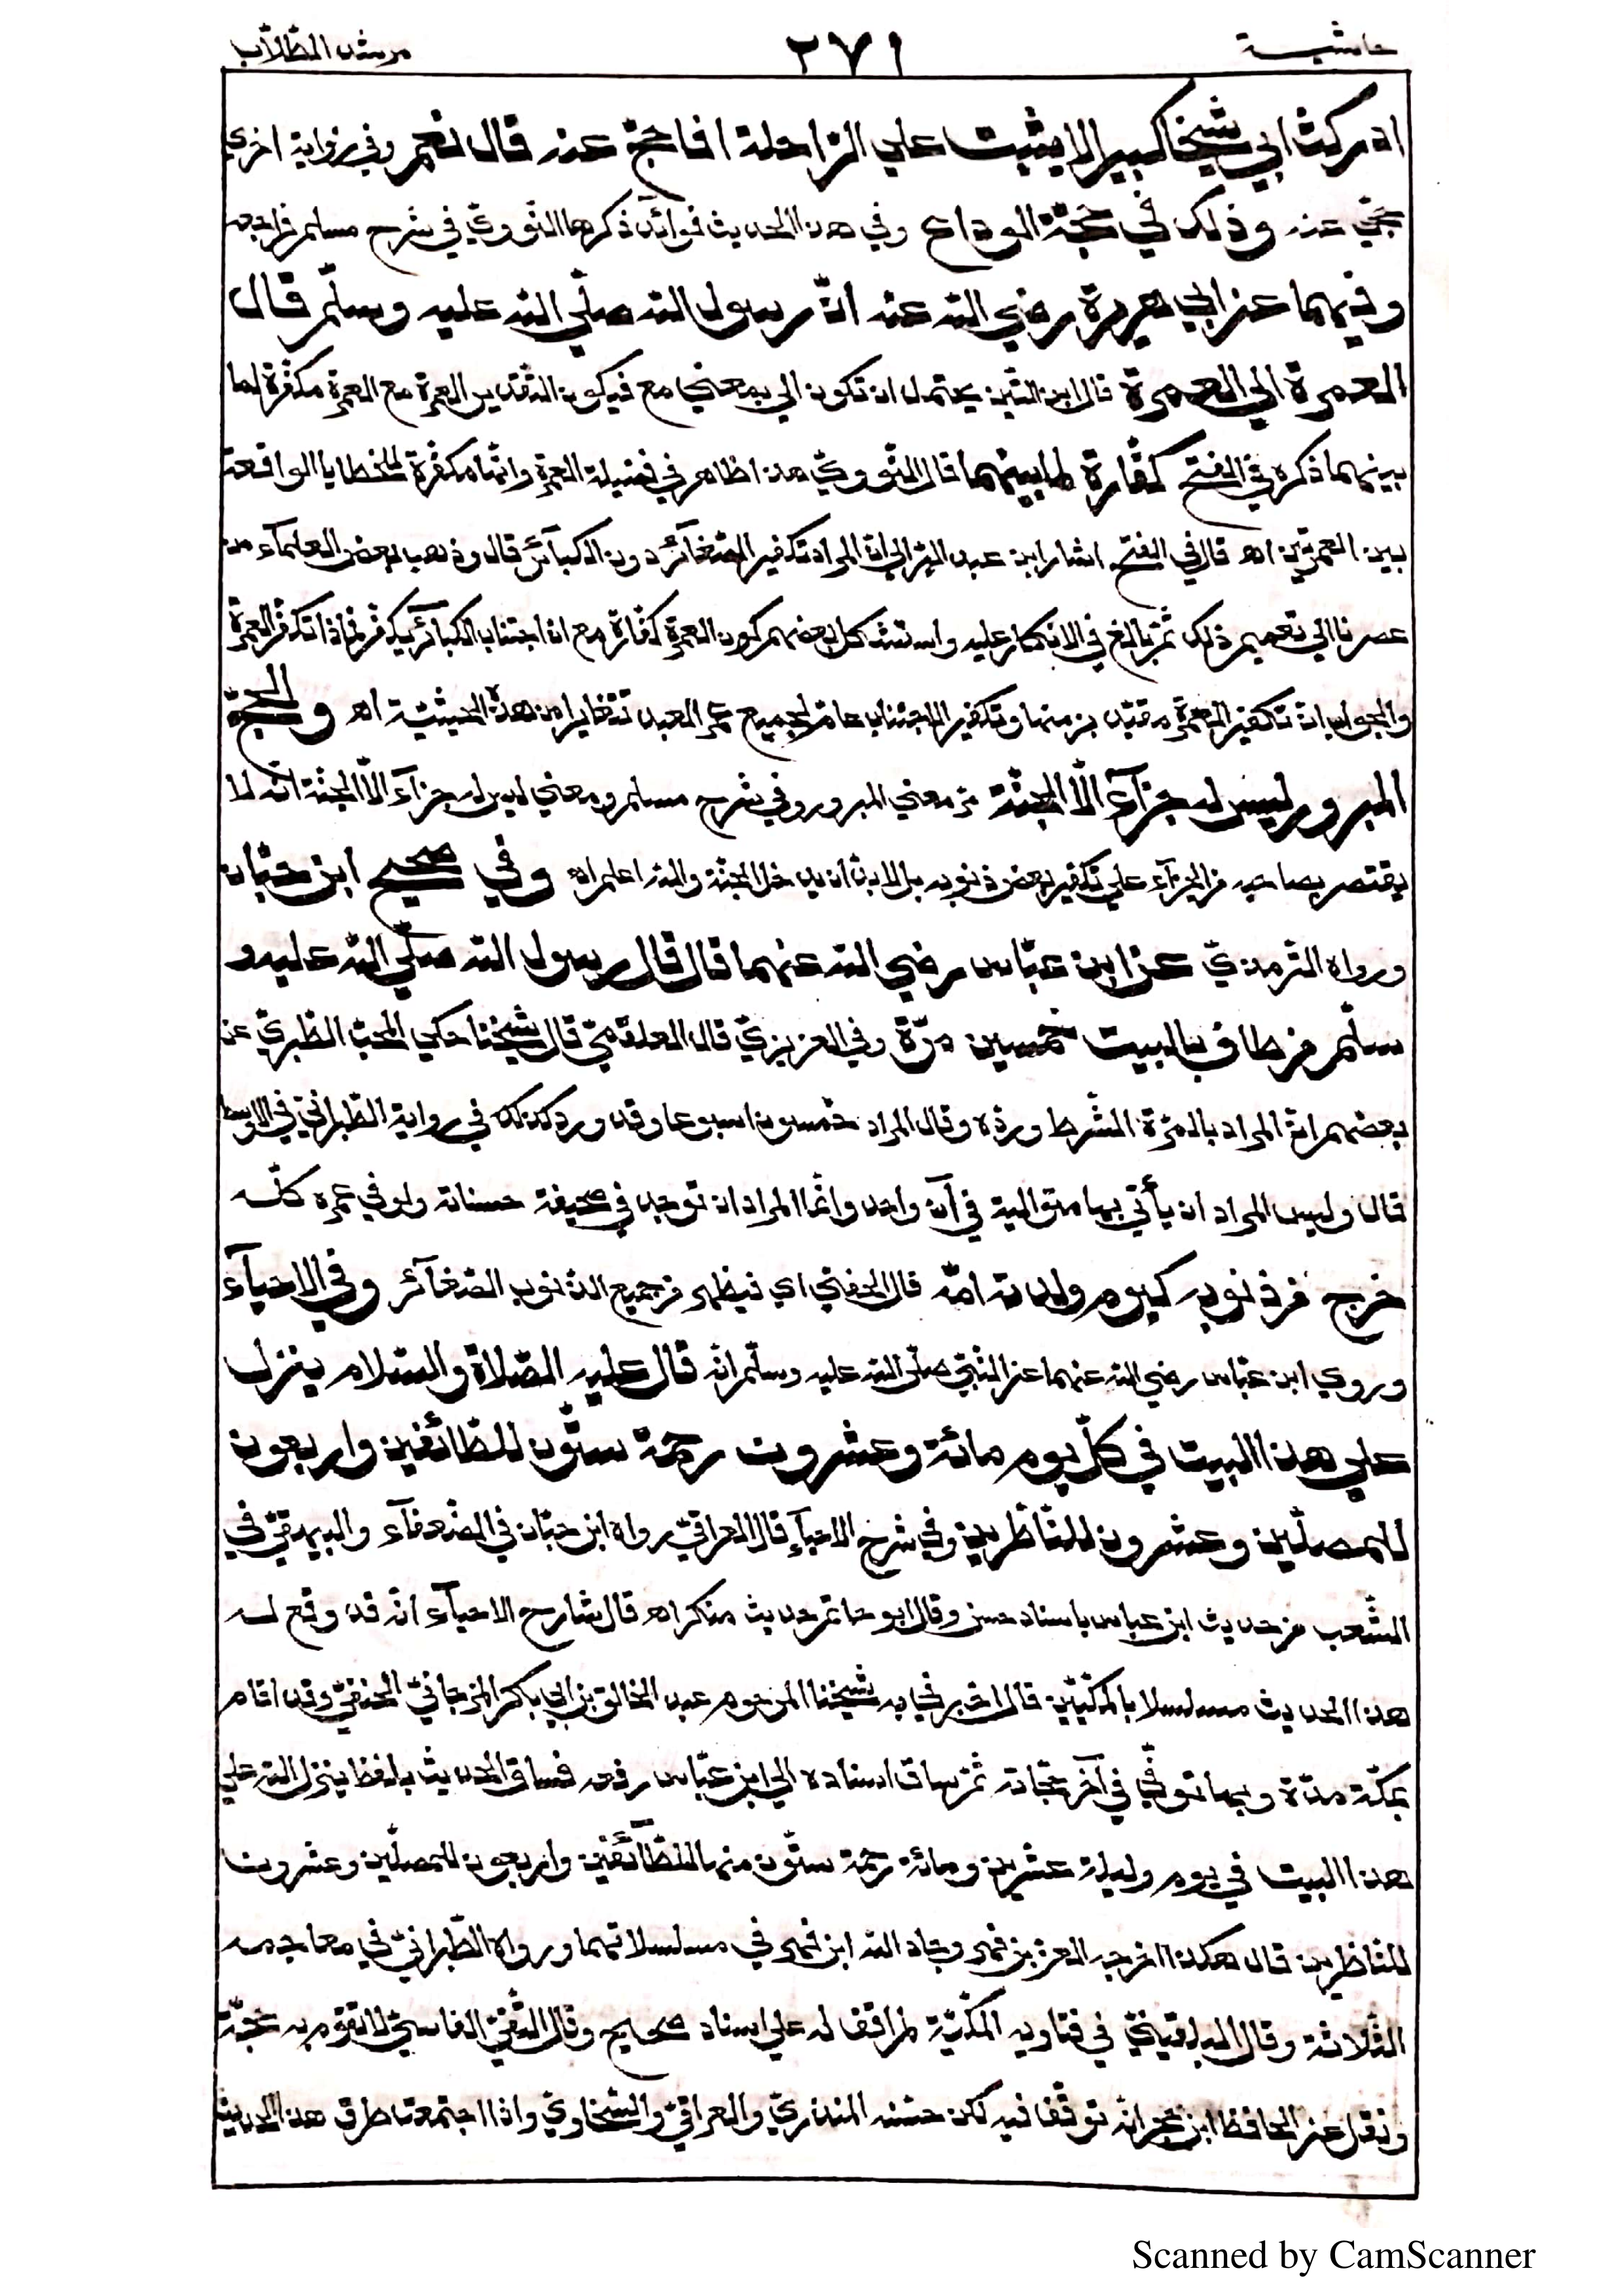 حاشيـــة ٢٧١ مرشد الطّلّاب
ادركت ابي شيخا كبيرا لا يثبت علي الرّاحلة افاحجّ عنه قال نعم وفي رواية اخري
حجّي عنه وذلك في حجّة الوداع وفي هذا الحديث فوائد ذكرها النّوويّ في شرح مسلم فراجعه
وفيهما عن ابي هريرة رضي الله عنه انّ رسول الله صلّي الله عليه وسلّم قال
العمرة الي العمرة قال ابن التّين يحتمل ان تكون الي بمعني مع فيكون التّقدير العمرة مع العمرة مكفّرة لما
بينهما ذكره في الفتح كفّارة لما بينهما قال النّوويّ هذا ظاهر في فضيلة العمرة وانّها مكفّرة للخطايا الواقعة
بين العمرتين اه قال في الفتح اشار ابن عبد البرّ الي انّ المراد تكفير الصّغآئر دون الكبآئر قال وذهب بعض العلمآء من
عصرنا الي تعميم ذلك ثمّ بالغ في الانكار عليه واستشكل بعضهم كون العمرة كفّارة مع انّ اجتناب الكبآئر يكفّر فماذا تكفّر العمرة
والجواب انّ تكفير العمرة مقيّد بزمنها وتكفير الاجتناب عامّ لجميع عمر العبد تتغايرا من هذه الحيثيّة اه والحجّ
المبرور ليس له جزآء الّا الجنّة مرّ معني المبرور وفي شرح مسلم ومعني ليس له جزآء الّا الجنّة انّه لا
يقتصر بصاحبه من الجزآء علي تكفير بعض ذنوبه بل لا بدّ ان يدخل الجنّة والله اعلم اه وفي صحيح ابن حبّان
ورواه التّرمذيّ عن ابن عبّاس رضي الله عنهما قال قال رسول الله صلّي الله عليه و
سلّم من طاف بالبيت خمسين مرّة وفي العزيزيّ قال العلقميّ قال شيخنا حكي المحبّ الطّبريّ عن
بعضهم انّ المراد بالمرّة الشّرط وردّه وقال المراد خمسون اسبوعا وقد ورد كذلك في رواية الطّبرانيّ في الاوسط
قال وليس المراد ان يأتي بها متوالية في آن واحد وانّما المراد ان توجد في صحيفة حسناته ولو في عمره كلّه
خرج من ذنوبه كيوم ولدته امّه قال الحفني اي فيطهر من جميع الذّنوب الصّغآئر وفي الاحيآء
وروي ابن عبّاس رضي الله عنهما عن النّبيّ صلّي الله عليه وسلّم انّه قال عليه الصّلاة والسّلام ينزل
علي هذا البيت في كلّ يوم مائة وعشرون رحمة ستّون للطّائفين واربعون
للمصلّين وعشرون للنّاظرين وفي شرح الاحيآء قال العراقيّ رواه ابن حبّان في الضّعفآء والبيهقيّ في
الشّعب من حديث ابن عباس باسناد حسن وقال ابو حاتم حديث منكر اه قال شارح الاحيآء انّه قد وقع لـه
هذا الحديث مسلسلا بالمكّيّين قال اخبرني به شيخنا المرحوم عبد الخالق بن ابي بكر المزجاجيّ الحنفيّ وقد اقام
بمكّة مدّة وبها توفّي في آخر حجّاته ثمّ ساق اسناده الي ابن عبّاس رفعه فساق الحديث بلفظ ينزل الله علي
هذا البيت في يوم وليلة عشرين ومائة رحمة ستّون منها للطّآئفين واربعون للمصلّين وعشرون
للنّاظرين قال هكذا اخرجه العزّ بن فهد وجاد الله ابن فهد في مسلسلاتهما ورواه الطّبرانيّ في معاجمه
الثّلاثة وقال البلقينيّ في فتاويه المكّيّة لم اقف له علي اسناد صحيح وقال التّقيّ الفاسيّ لا تقوم به حجّة
ونقل عن الحافظ ابن حجر انّه توقّف فيه لكن حسّنه المنذريّ والعراقيّ والسّخاويّ واذا اجتمعت طرق هذا الحديث
Scanned by CamScanner